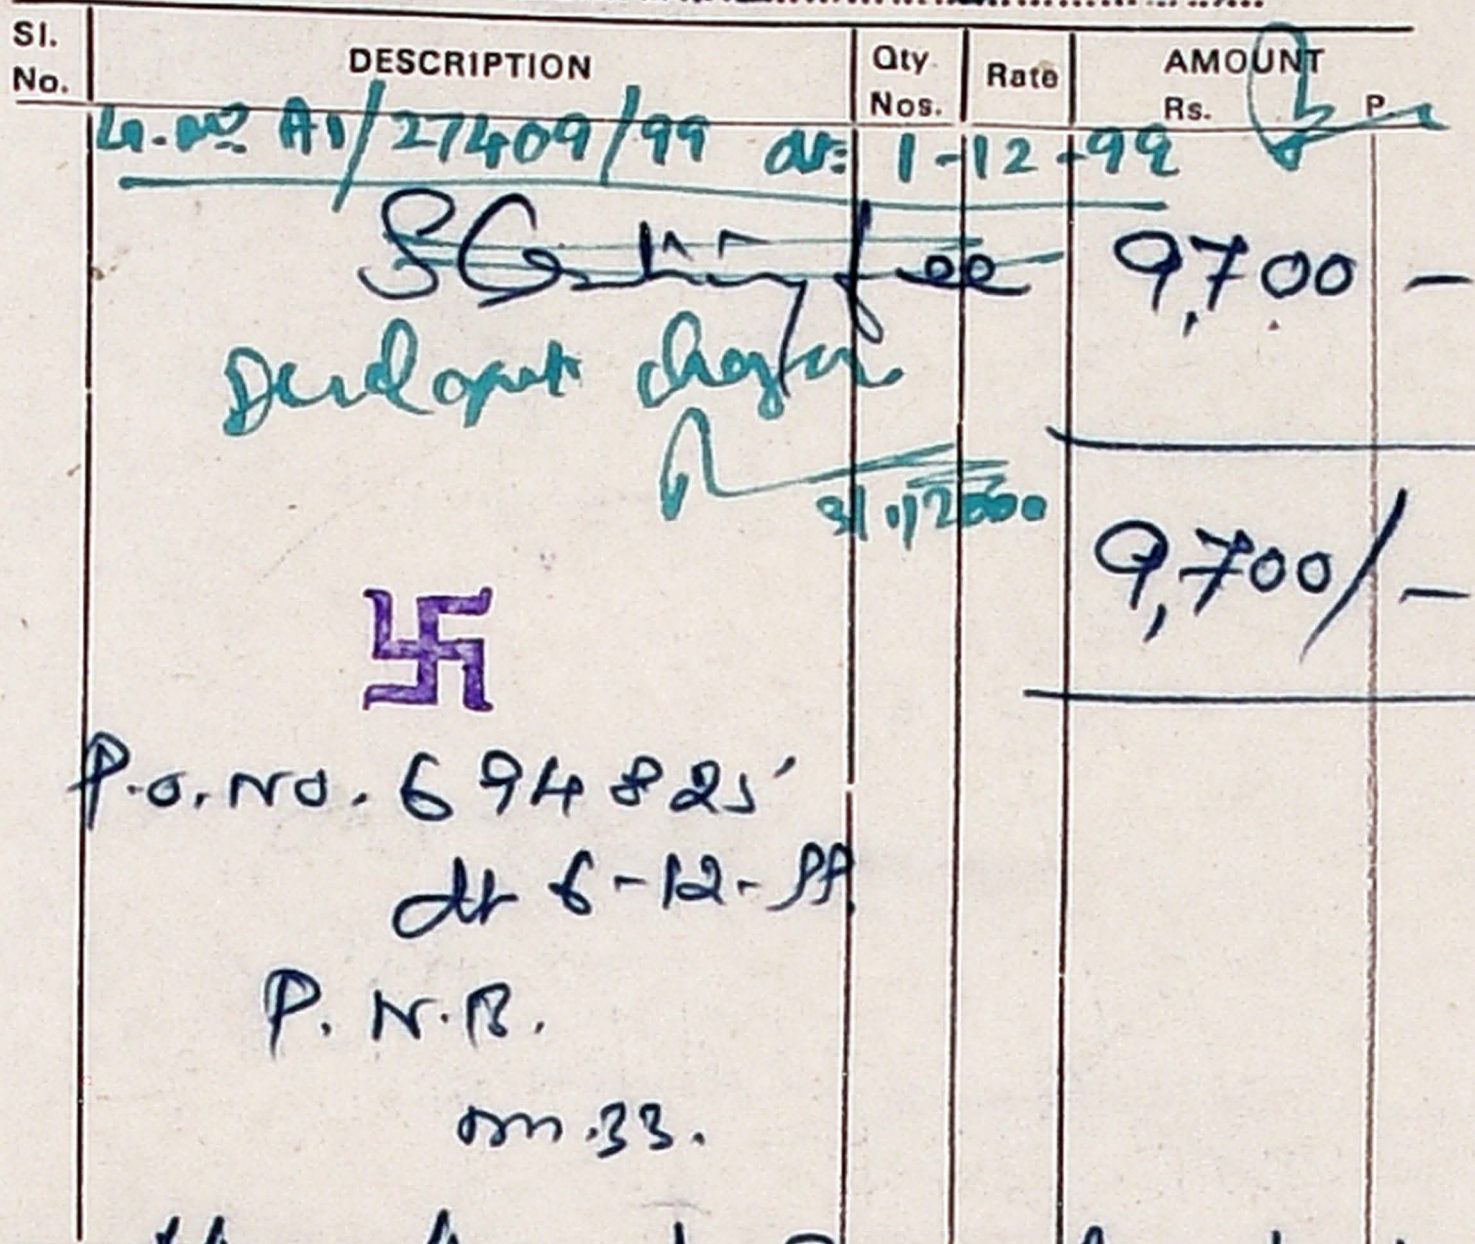 Sl. No. DESCRIPTION Qty Nos. Rate AMOUNT Rs. P.
Lr. No. A1/27409/99 dt: 1-12-99
S Gs fee 9,700 –
Development charges
3/1/2000
9,700/–
P.O. No. 694825
dt 6-12-99
P.N.B.
m.33.